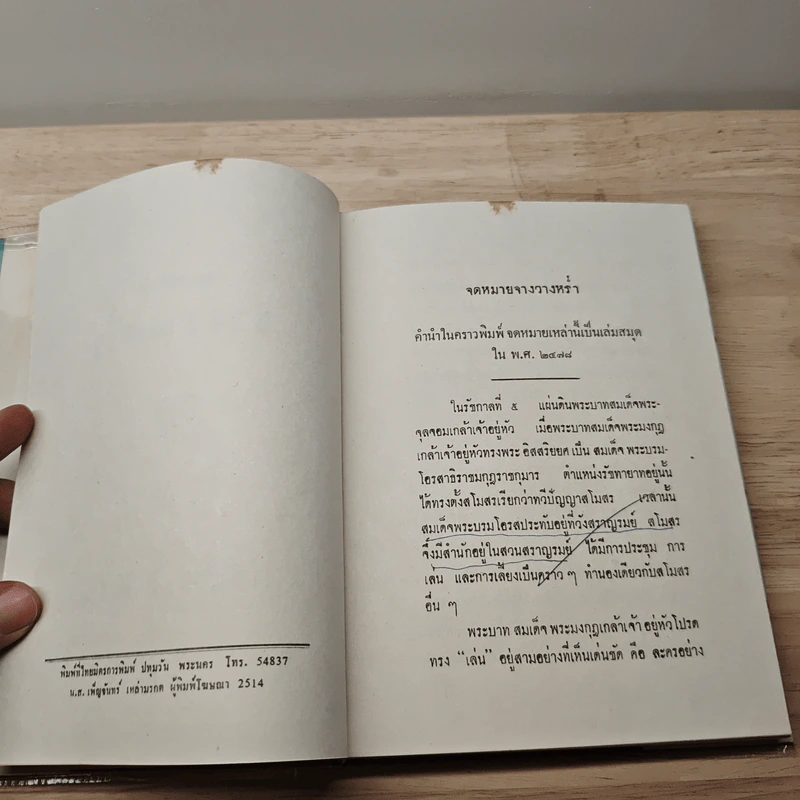 พิมพ์ที่ไทยมิตรการพิมพ์ ปทุมวัน พระนคร โทร. 54837
น.ส. เพ็ญจันทร์ เหล่ามรกต ผู้พิมพ์โฆษณา 2514
จดหมายจางวางหร่ำ
คำนำในคราวพิมพ์ จดหมายเหล่านี้เป็นเล่มสมุด
ใน พ.ศ. ๒๔๗๘
ในรัชกาลที่ ๕ แผ่นดินพระบาทสมเด็จพระ-
จุลจอมเกล้าเจ้าอยู่หัว เมื่อพระบาทสมเด็จพระมงกุฎ
เกล้าเจ้าอยู่หัวทรงพระ อิสสริยยศ เป็น สมเด็จ พระบรม-
โอรสาธิราชมกุฎราชกุมาร ตำแหน่งรัชทายาทอยู่นั้น
ได้ทรงตั้งสโมสรเรียกว่าทวีปัญญาสโมสร เวลานั้น
สมเด็จพระบรมโอรสประทับอยู่ที่วังสราญรมย์ สโมสร
จึงมีสำนักอยู่ในสวนสราญรมย์ ได้มีการประชุม การ
เล่น และการเลี้ยงเป็นคราว ๆ ทำนองเดียวกับสโมสร
อื่น ๆ
พระบาท สมเด็จ พระมงกุฎเกล้าเจ้า อยู่หัวโปรด
ทรง “เล่น” อยู่สามอย่างที่เห็นเด่นชัด คือ ละครอย่าง